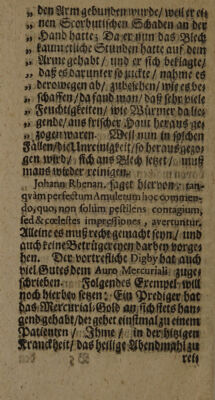 „ den Arm gebunden wurde/ weil er ei-
„ nen Scorbutischen Schaden an der
„ Hand hatte; Da er nun das Blech
„ kaum etliche Stunden hatte auf dem
„ Arme gehabt/ und er sich beklagte/
„ daß es darunter so juckte/ nahme es
„ derowegen ab/ zubesehen/ wie es be-
„ schaffen/ da fand man/ daß sehr viele
„ Feuchtigkeiten/ wie Würmer da lie-
„ gende/ aus frischer Haut heraus ge-
„ zogen waren. Weil nun in solchen
Fällen/ die Unreinigkeit/ so herausgezo-
gen wird/ sich ans Blech setzet/ muß
mans wieder reinigen.
Johann Rhenan. saget hiervon: tan-
qvàm perfectum Amuletum hoc commen-
do, quo, non solùm pestilens contagium,
sed & cœlestes impressiones, avertuntur.
Alleine es muß recht gemacht seyn/ und
auch keine Betrügereyen darbey vorge-
hen. Der vortrefliche Digby hat auch
viel Gutes dem Auro Mercuriali zuge-
schrieben. Folgendes Exempel will
noch hierbey setzen: Ein Prediger hat
das Mercurial-Gold an sich stets han-
gend gehabt/ der gehet einstmal zu einem
Patienten/ Ihme/ in der hitzigen
Kranckheit/ das heilige Abendmahl zu
rei-